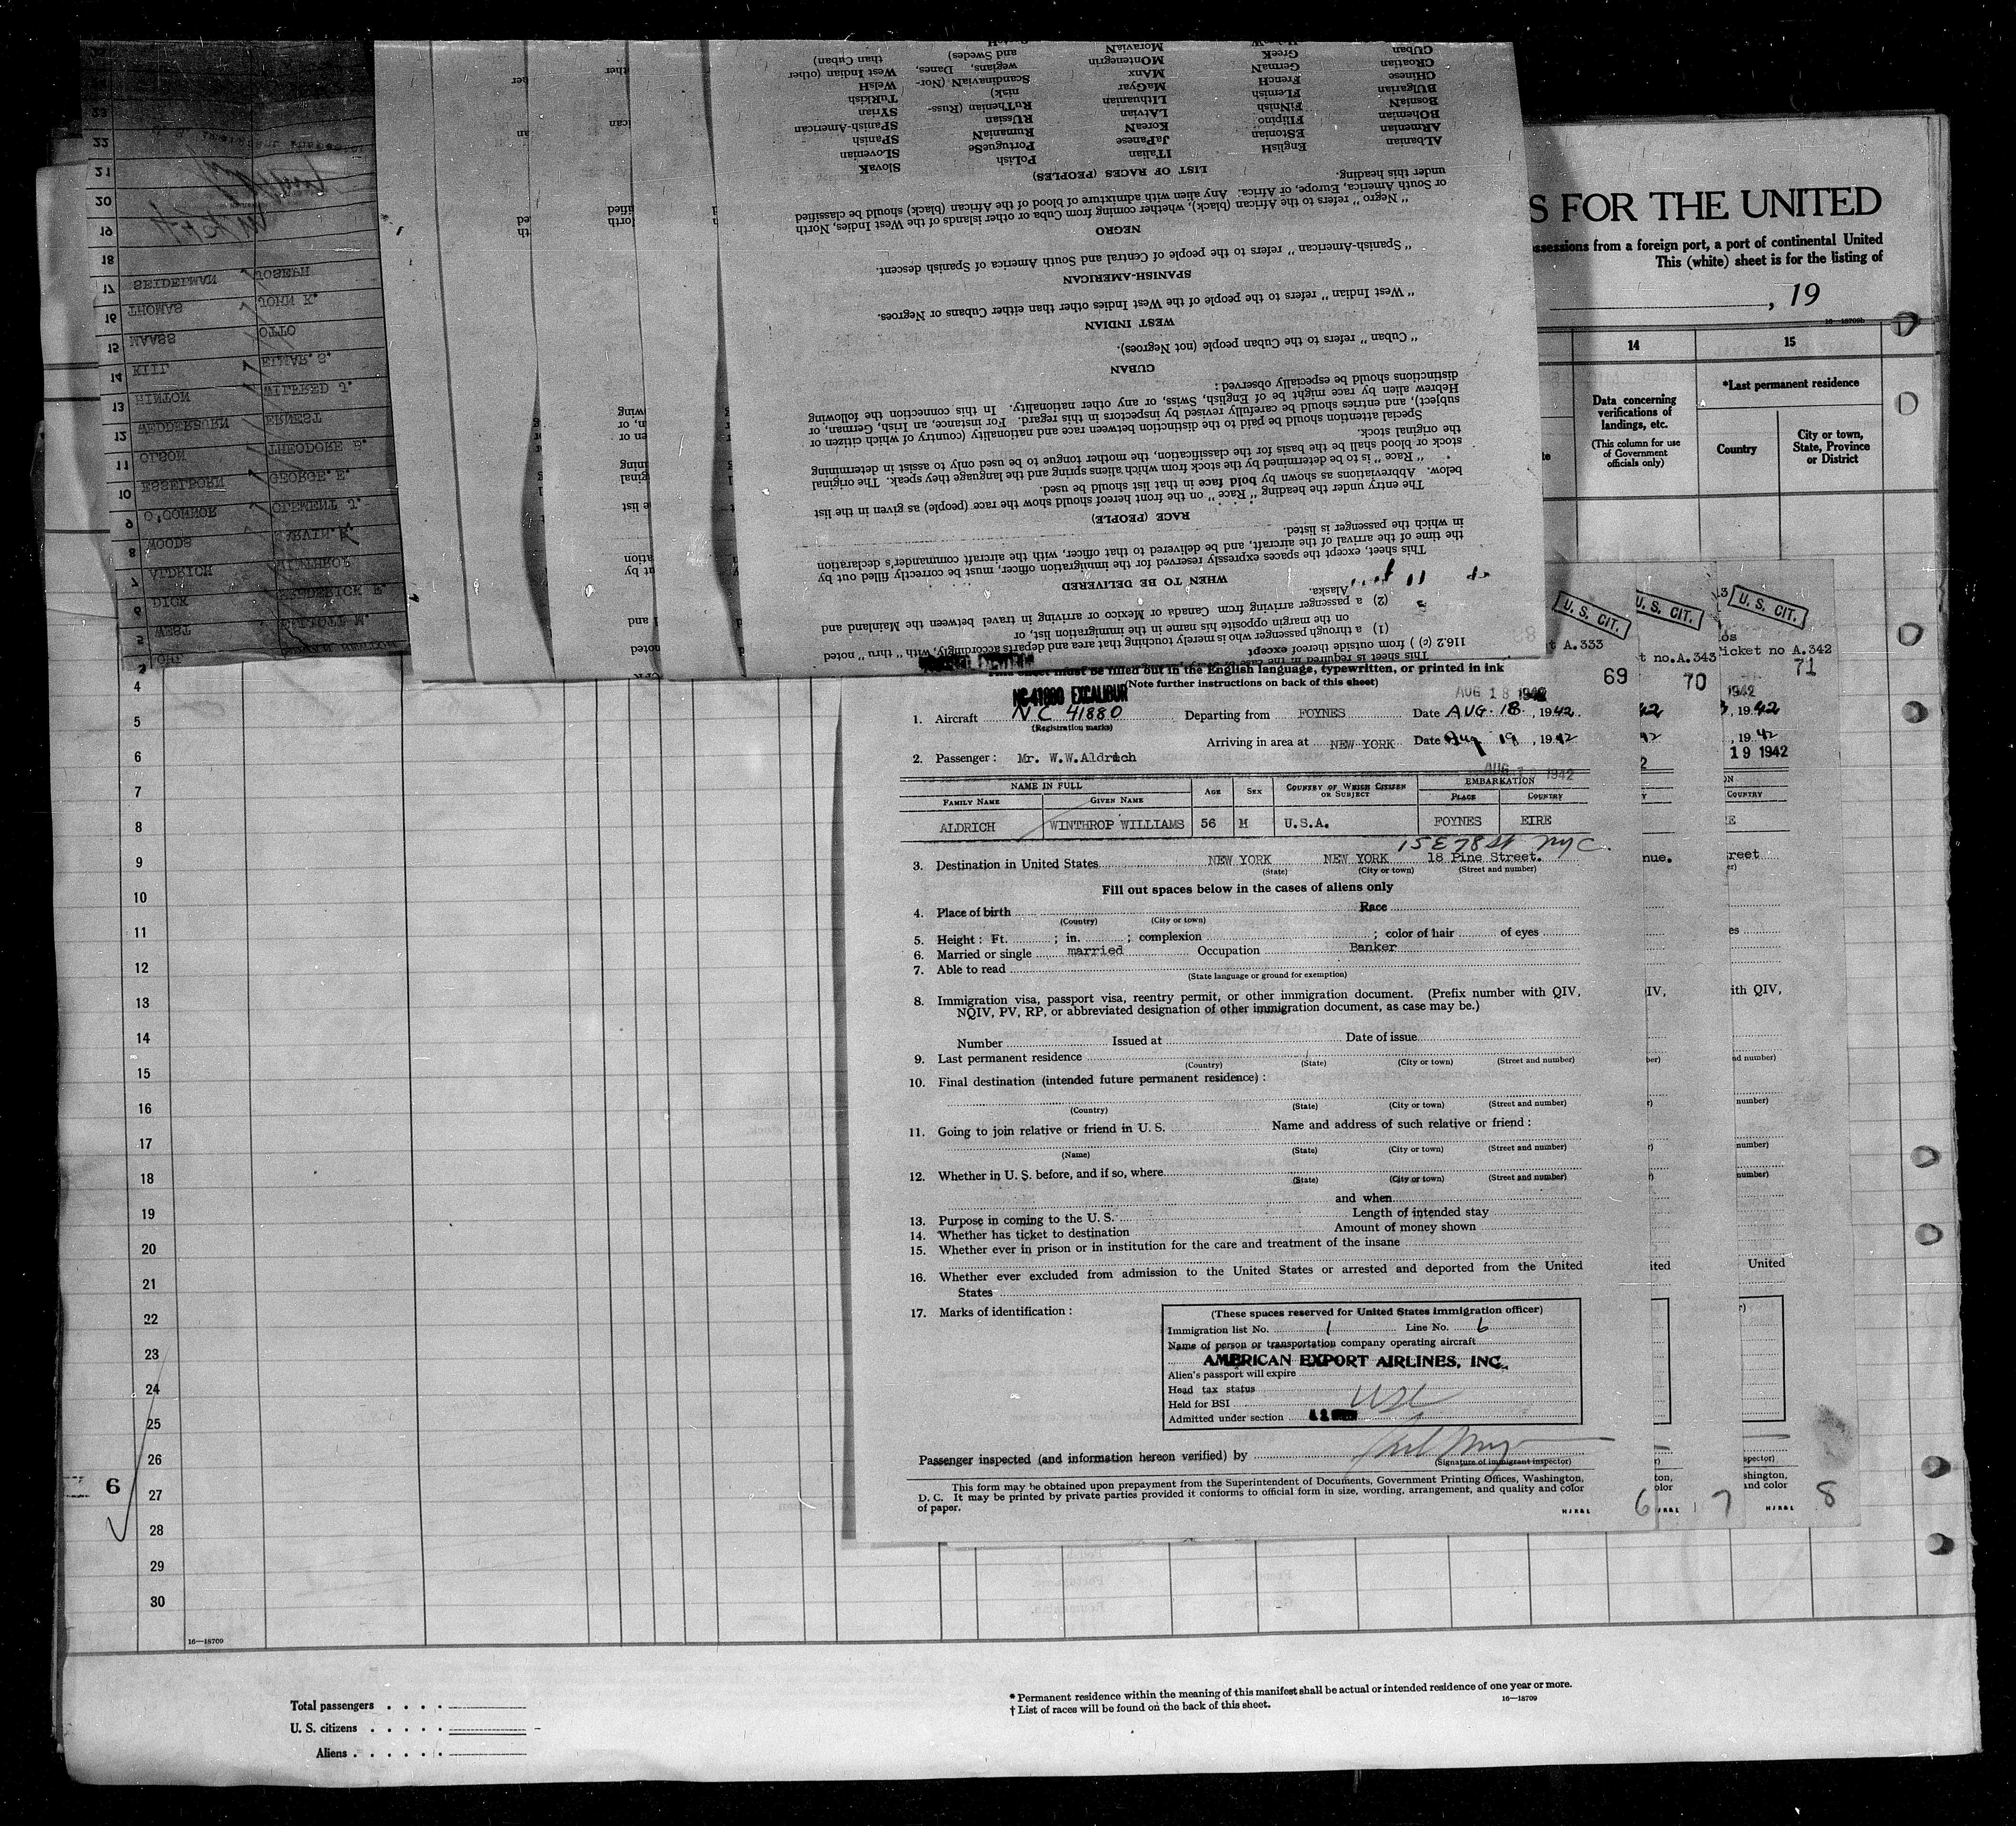 S FOR THE UNITED
ssessions from a foreign port, a port of continental United
This (white) sheet is for the listing of
, 19
16—18709b
14
15
Data concerning verifications of landings, etc.
(This column for use of Government officials only)
*Last permanent residence
Country
City or town, State, Province or District
23
22
21
20
19
18
17 SEIDELMAN JOSEPH
16 THOMAS JOHN K.
15 MAASS OTTO
14 KIIL ELMAR. S.
13 HINTON WILFRED J.
12 WEDDERBURN ERNEST
11 OLSON THEODORE B.
10 ESSELBORN GEORGE. E.
9 O'CONNOR CLEMENT J.
8 WOODS
7 ALDRICH WINTHROP
6 DICK FREDERICK F.
5 WEST ELLIOTT M.
This sheet is required in the case of
116.2 (c) ) from outside thereof except
(1) a through passenger who is merely touching that area and departs accordingly, with "thru" noted
on the margin opposite his name in the immigration list, or
(2) a passenger arriving from Canada or Mexico or arriving in travel between the Mainland and
Alaska.
WHEN TO BE DELIVERED
This sheet, except the spaces expressly reserved for the immigration officer, must be correctly filled out by
the time of the arrival of the aircraft, and be delivered to that officer, with the aircraft commander's declaration
in which the passenger is listed.
RACE (PEOPLE)
The entry under the heading "Race" on the front hereof should show the race (people) as given in the list
below. Abbreviations as shown by bold face in that list should be used.
"Race" is to be determined by the stock from which aliens spring and the language they speak. The original
stock or blood shall be the basis for the classification, the mother tongue to be used only to assist in determining
the original stock.
Special attention should be paid to the distinction between race and nationality (country of which citizen or
subject), and entries should be carefully revised by inspectors in this regard. For instance, an Irish, German, or
Hebrew alien by race might be of English, Swiss, or any other nationality. In this connection the following
distinctions should be especially observed:
CUBAN
"Cuban" refers to the Cuban people (not Negroes).
WEST INDIAN
"West Indian" refers to the people of the West Indies other than either Cubans or Negroes.
SPANISH-AMERICAN
"Spanish-American" refers to the people of Central and South America of Spanish descent.
NEGRO
"Negro" refers to the African (black), whether coming from Cuba or other islands of the West Indies, North
or South America, Europe, or Africa. Any alien with admixture of blood of the African (black) should be classified
under this heading.
LIST OF RACES (PEOPLES)
AlBanian EngliSH ITalian PoLish SlovaK
ARmenian EStonian JaPanese PortugueSe SLovenian
BOhemian FIlipino KoreaN RumaniaN SPanish
BosniaN FiNnish LAtvian RUssian SPanish-American
BUlgarian FLemish LIthuanian RuThenian (Russniak) SYrian
CHinese FrencH MaGyar TuRkish
CRoatian GermaN MAnx ScandinaviaN (Norwegians, Danes, and Swedes) WelsH
CUban GreeK MOntenegrin West Indian (other than Cuban)
MoraviaN
This sheet must be filled out in the English language, typewritten, or printed in ink
(Note further instructions on back of this sheet)
NC-41880 EXCALIBUR
AUG 18 1942
1. Aircraft NC 41880 Departing from FOYNES Date AUG. 18, 1942
(Registration marks)
Arriving in area at NEW YORK Date Aug 19, 1942
2. Passenger: Mr. W.W.Aldrich
NAME IN FULL
FAMILY NAME
GIVEN NAME
AGE
SEX
COUNTRY OF WHICH CITIZEN OR SUBJECT
EMBARKATION
PLACE
COUNTRY
ALDRICH WINTHROP WILLIAMS 56 M U.S.A. FOYNES EIRE
15 E 78 St NYC.
3. Destination in United States NEW YORK NEW YORK 18 Pine Street.
(State) (City or town) (Street and number)
Fill out spaces below in the cases of aliens only
4. Place of birth Race
(Country) (City or town)
5. Height: Ft. ; in. ; complexion ; color of hair of eyes
6. Married or single married Occupation Banker
7. Able to read
(State language or ground for exemption)
8. Immigration visa, passport visa, reentry permit, or other immigration document. (Prefix number with QIV,
NQIV, PV, RP, or abbreviated designation of other immigration document, as case may be.)
Number Issued at Date of issue
9. Last permanent residence
(Country) (State) (City or town) (Street and number)
10. Final destination (intended future permanent residence):
(Country) (State) (City or town) (Street and number)
11. Going to join relative or friend in U. S. Name and address of such relative or friend:
(Name) (State) (City or town) (Street and number)
12. Whether in U. S. before, and if so, where
(State) (City or town) (Street and number)
and when
13. Purpose in coming to the U. S. Length of intended stay
14. Whether has ticket to destination Amount of money shown
15. Whether ever in prison or in institution for the care and treatment of the insane
16. Whether ever excluded from admission to the United States or arrested and deported from the United
States
17. Marks of identification:
(These spaces reserved for United States immigration officer)
Immigration list No. 1 Line No. 6
Name of person or transportation company operating aircraft
AMERICAN EXPORT AIRLINES, INC.
Alien's passport will expire
Head tax status
Held for BSI USC
Admitted under section
Passenger inspected (and information hereon verified) by
(Signature of immigrant inspector)
This form may be obtained upon prepayment from the Superintendent of Documents, Government Printing Offices, Washington,
D. C. It may be printed by private parties provided it conforms to official form in size, wording, arrangement, and quality and color
of paper.
H J R & L
6 7 8
U. S. CIT.
U. S. CIT.
U. S. CIT.
t A.333
t no.A.343
icket no A.342
69
70
71
19 1942
4
5
6
7
8
9
10
11
12
13
14
15
16
17
18
19
20
21
22
23
24
25
26
6
27
28
29
30
16—18709
Total passengers
U. S. citizens
Aliens
* Permanent residence within the meaning of this manifest shall be actual or intended residence of one year or more.
† List of races will be found on the back of this sheet.
16—18709